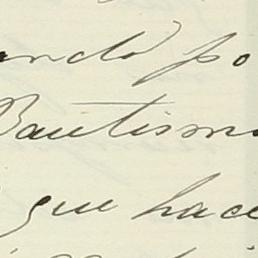 ando po
Bautism
que hace